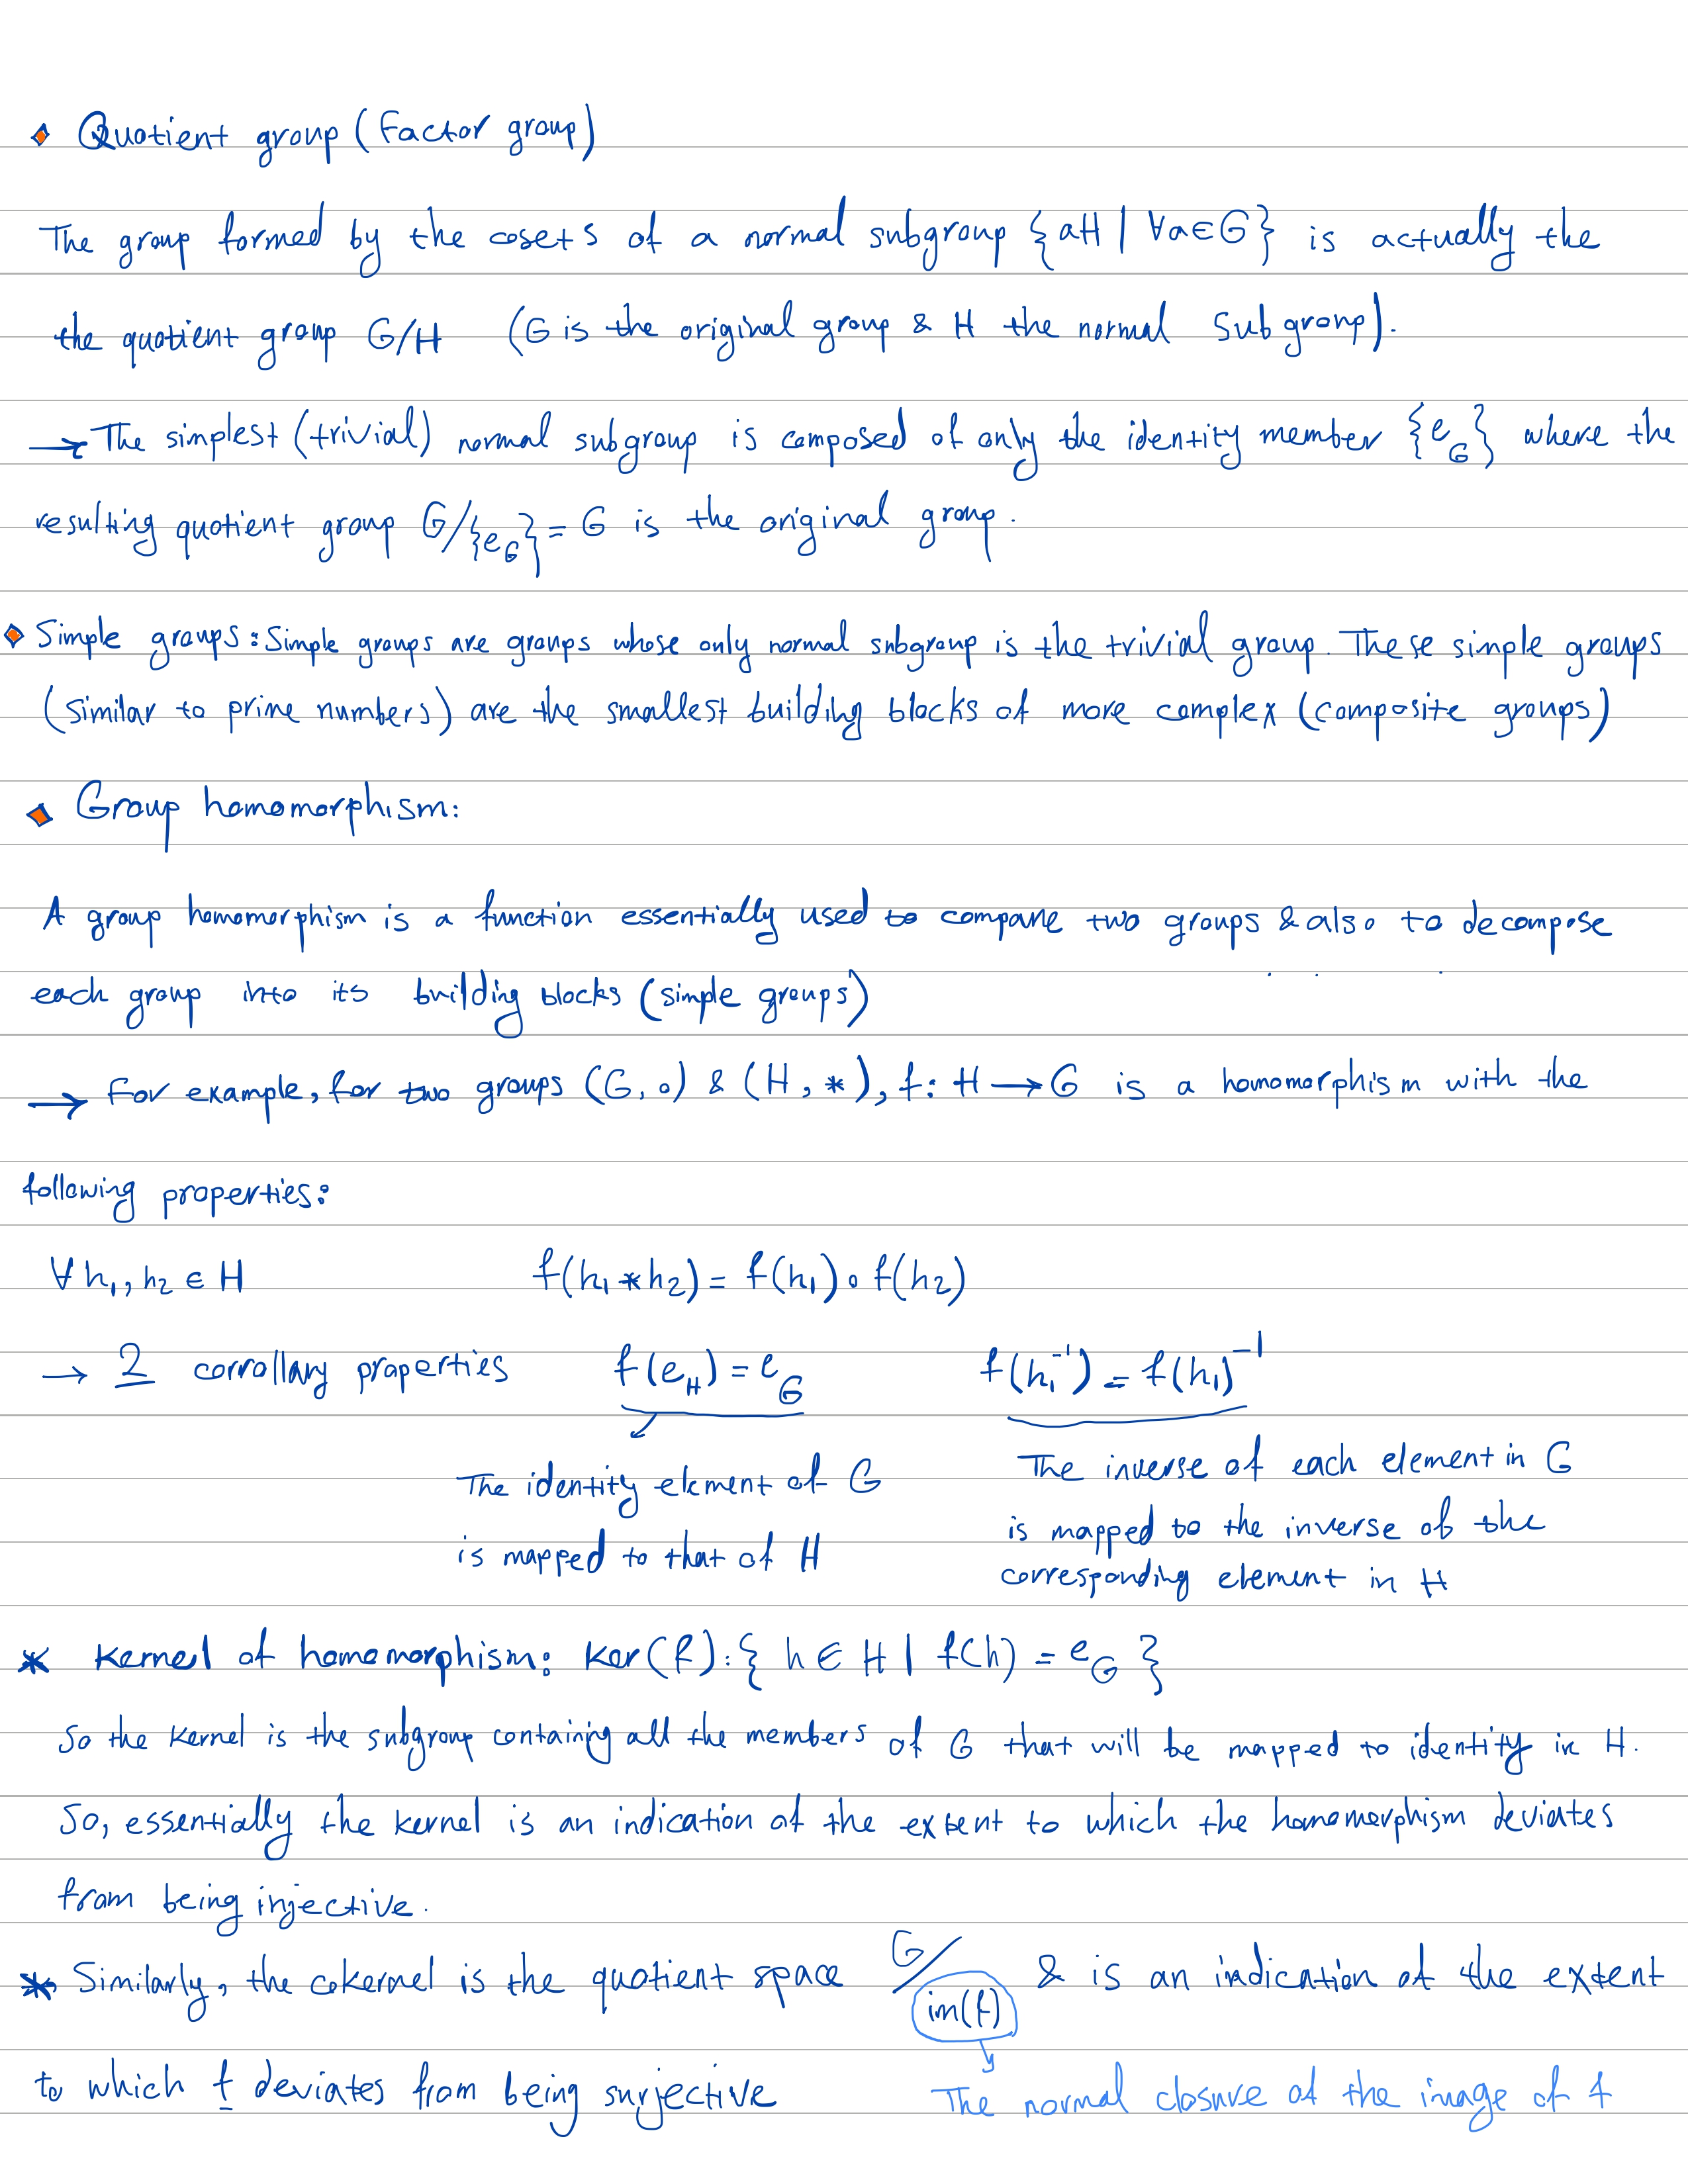 Quotient group (Factor group)
The group formed by the cosets of a normal subgroup {aH | ∀a∈G} is actually the
the quotient group G/H (G is the original group & H the normal subgroup).
→ The simplest (trivial) normal subgroup is composed of only the identity member {e_G} where the
resulting quotient group G/{e_G} = G is the original group.
Simple groups: Simple groups are groups whose only normal subgroup is the trivial group. These simple groups
(similar to prime numbers) are the smallest building blocks of more complex (composite groups)
Group homomorphism:
A group homomorphism is a function essentially used to compare two groups & also to decompose
each group into its building blocks (simple groups)
→ For example, for two groups (G, ∘) & (H, *), f: H → G is a homomorphism with the
following properties:
∀ h₁, h₂ ∈ H f(h₁ * h₂) = f(h₁) ∘ f(h₂)
→ 2 corrollary properties f(e_H) = e_G f(h₁⁻¹) = f(h₁)⁻¹
The identity element of G
is mapped to that of H
The inverse of each element in G
is mapped to the inverse of the
corresponding element in H
* Kernel of homomorphism: Ker(f): { h ∈ H | f(h) = e_G }
So the Kernel is the subgroup containing all the members of G that will be mapped to identity in H.
So, essentially the kernel is an indication of the extent to which the homomorphism deviates
from being injective.
* Similarly, the cokernel is the quotient space G/im(f) & is an indication of the extent
to which f deviates from being surjective
The normal closure of the image of f